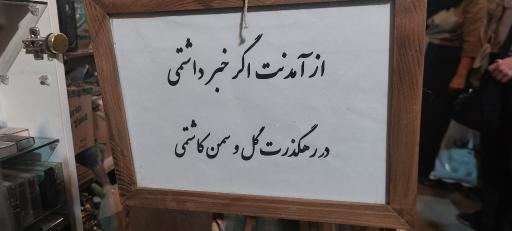 از آمدنت اگر خبر داشتمی
در رهگذرت گل و سمن کاشتمی